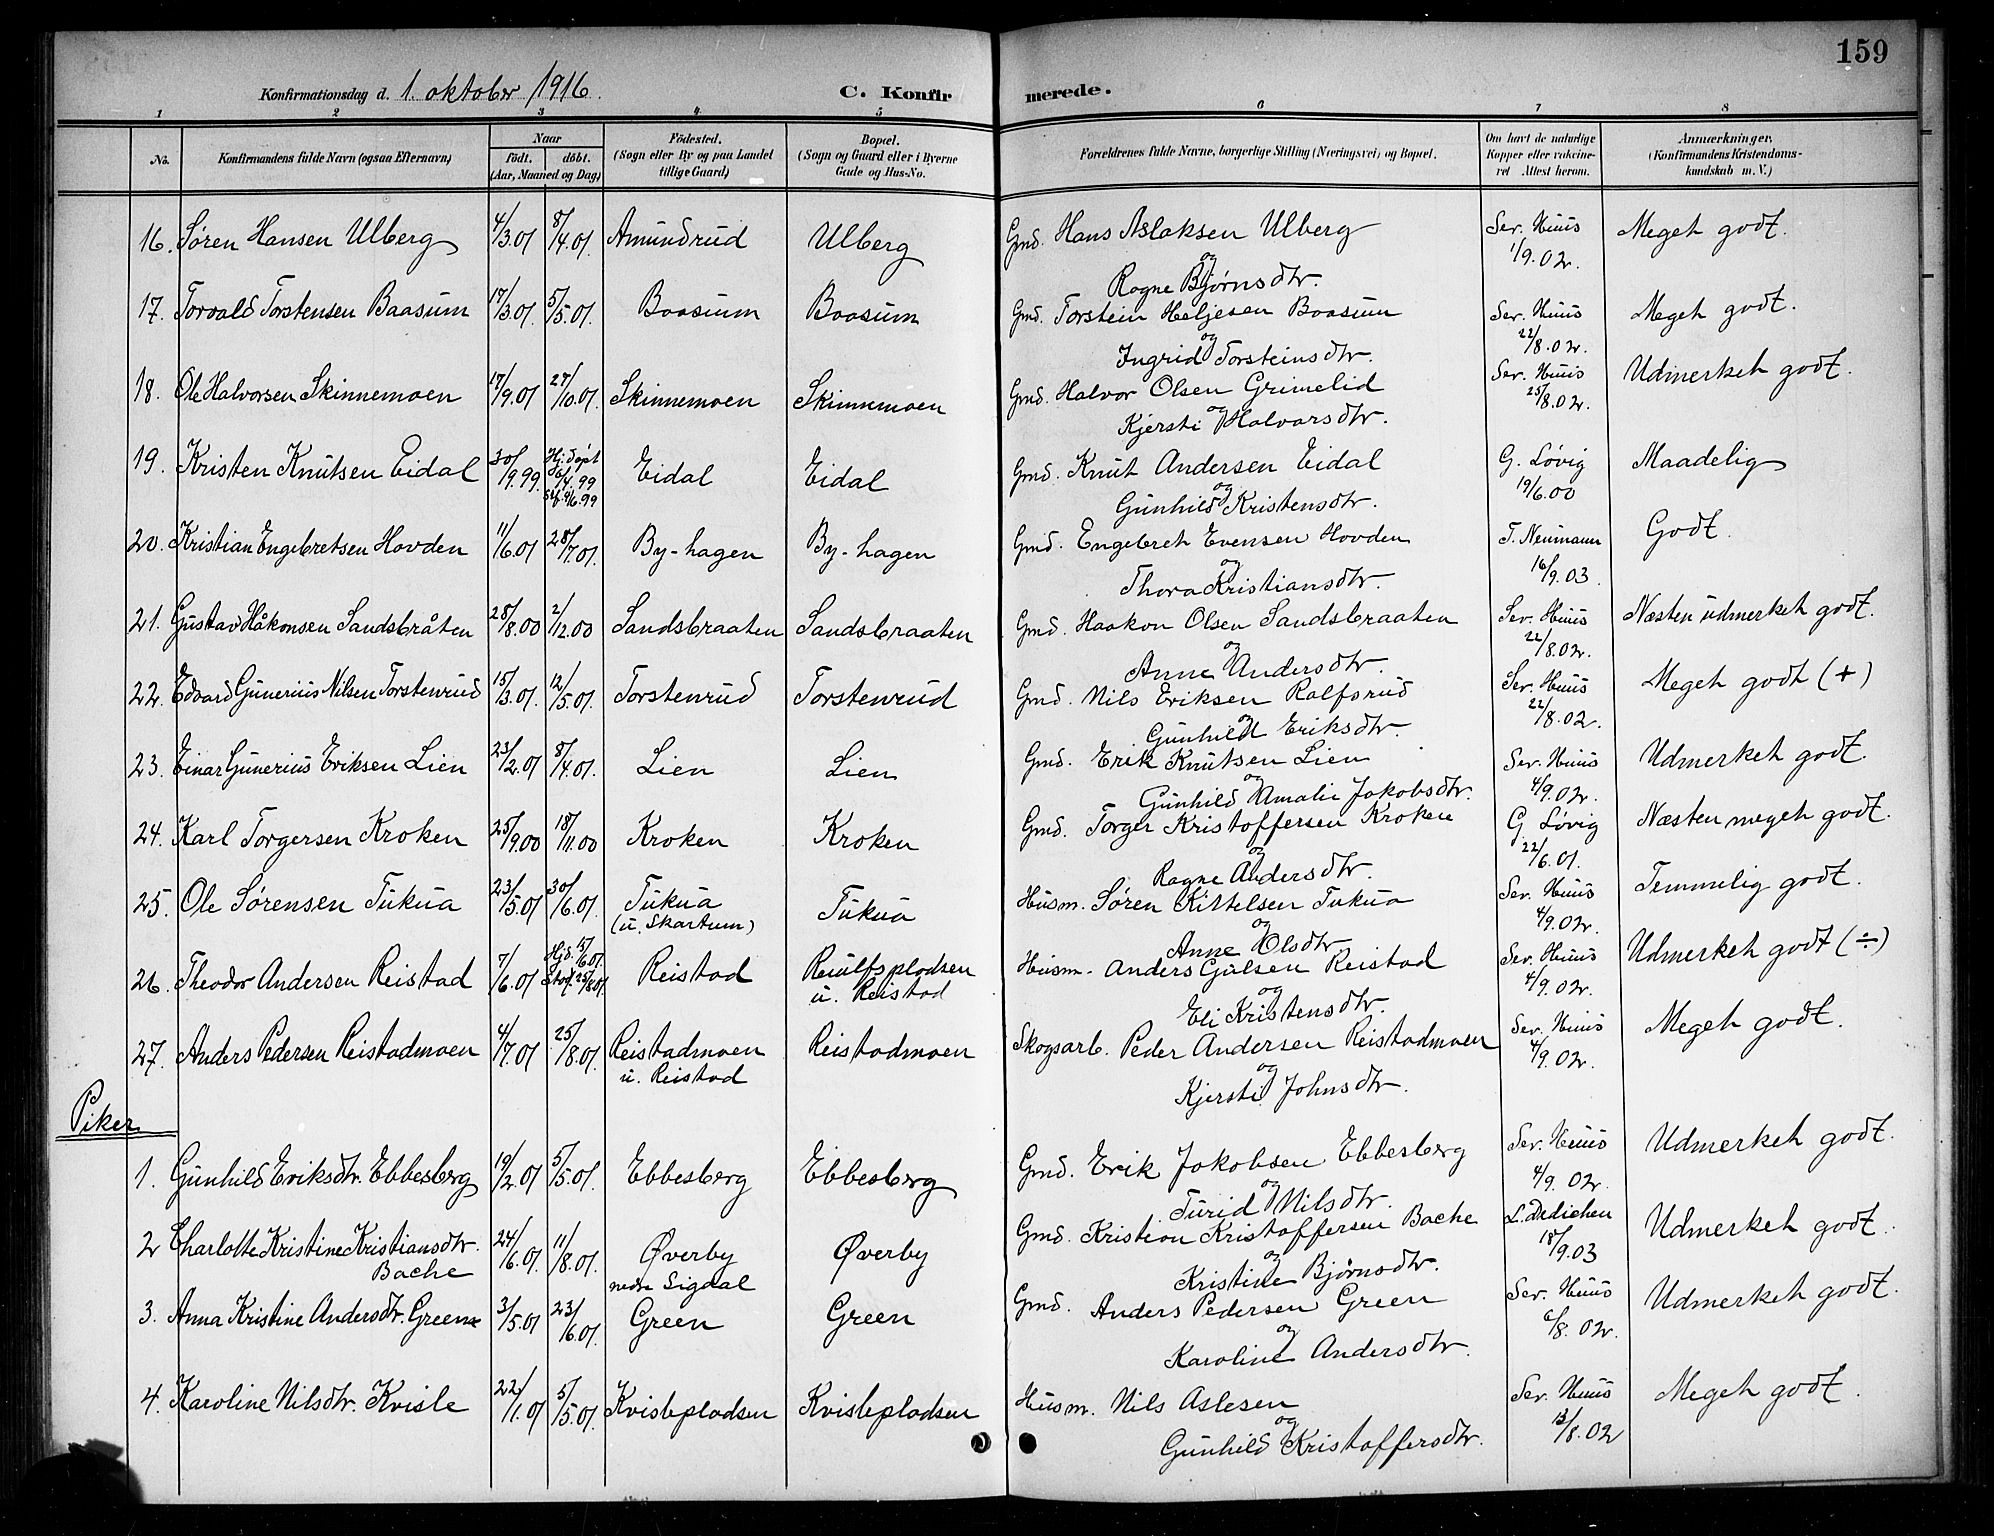 159
Konfirmationsdag d. 1. oktober 1916.
C. Konfirmerede.
1 2 3 4 5 6 7 8
No. Konfirmandens fulde Navn (ogsaa Efternavn) Naar födt. döbt. (Aar, Maaned og Dag) Födested. (Sogn eller By og paa Landet tillige Gaard) Bopæl. (Sogn og Gaard eller i Byerne Gade og Hus-No. Forældrenes fulde Navne, borgerlige Stilling (Næringsvei) og Bopæl. Om havt de naturlige Kopper eller vakcineret Attest herom. Anmærkninger, (Konfirmandens Kristendomskundskab m. V.)
16. Søren Hansen Ulberg 4/3.01 8/4.01. Amundrud Ulberg Gmd. Hans Aslaksen Ulberg Ser. Huus Meget godt.
og 1/9.02.
Ragne Bjørnsdtr.
17. Torvald Torstensen Baasum 17/3.01. 5/5.01. Baasum Baasum Gmd. Torstein Heljesen Baasum Ser. Huus Meget godt.
og 22/8.02.
Ingrid Torsteinsdtr.
18. Ole Halvorsen Skinnemoen 17/9.01 27/10.01. Skinnemoen Skinnemoen Gmd. Halvor Olsen Grimelid Ser. Huus Udmerket godt.
og 25/8.02.
Kjersti Halvorsdtr.
19. Kristen Knutsen Eidal 30/9.99. Hj. døpt /4.99 /6.99 Eidal Eidal Gmd. Knut Andersen Eidal G. Løvig Maadelig
og 19/6.00
Gunhild Kristensdtr.
20. Kristian Engebretsen Hovden 11/6.01 28/7.01. By-hagen By-hagen Gmd. Engebret Evensen Hovden T. Neumann Godt.
og 16/9.03.
Thora Kristiansdtr.
21. Gustav Håkonsen Sandsbråten 28/8.00 2/12.00 Sandsbraaten Sandsbraaten Gmd. Haakon Olsen Sandsbraaten Ser. Huus Næsten udmerket godt.
og 22/8.02.
Anne Andersdtr.
22. Edvard Gunerius Nilsen Torstenrud 15/3.01. 12/5.01. Torstenrud Torstenrud Gmd. Nils Eriksen Ralfsrud Ser. Huus Meget godt (+)
og 22/8.02.
Gunhild Eriksdtr.
23. Einar Gunerius Eriksen Lien 23/2.01 8/4.01. Lien Lien Gmd. Erik Knutsen Lien Ser. Huus Udmerket godt.
og 4/9.02.
Gunhild Amalie Jakobsdtr.
24. Karl Torgersen Kroken 25/9.00 18/11.00 Kroken Kroken Gmd. Torger Kristoffersen Kroken G. Løvig Næsten meget godt.
og 22/6.01.
Ragne Andersdtr.
25. Ole Sørensen Tukua 23/5.01 30/6.01. Tukua Tukua Husm. Søren Kittelsen Tukua Ser. Huus Temmelig godt.
(u. Skartum) og 4/9.02.
Anne Olsdtr.
26. Theodor Andersen Reistad 7/6.01 Hjd. 15/6.01. Stadf. 25/8.01. Reistad Reulfspladsen Husm. Anders Gulsen Reistad Ser. Huus Udmerket godt (÷)
u. Reistad og 4/9.02.
Eli Kristensdtr.
27. Anders Pedersen Reistadmoen 4/7.01 25/8.01. Reistadmoen Reistadmoen Skogsarb. Peder Andersen Reistadmoen Ser. Huus Meget godt.
u. Reistad og 4/9.02.
Kjersti Johnsdtr.
Piker
1. Gunhild Eriksdtr. Ebbesberg 19/2.01 5/5.01. Ebbesberg Ebbesberg Gmd. Erik Jakobsen Ebbesberg Ser. Huus Udmerket godt.
og 4/9.02.
Turid Nilsdtr.
2 Charlotte Kristine Kristiansdtr. 24/6.01. 11/8.01. Øverby Øverby Gmd. Kristian Kristoffersen Bache L. Dedichen Udmerket godt.
Bache nedre Sigdal og 18/9.03
Kristine Bjørnsdtr.
3. Anna Kristine Andersdtr. Green 3/5.01 23/6.01. Green Green Gmd. Anders Pedersen Green Ser. Huus Udmerket godt.
og 6/8.02.
Karoline Andersdtr.
4. Karoline Nilsdtr. Kvisle 22/1.01 5/5.01. Kvislepladsen Kvislepladsen Husm. Nils Aslesen Ser. Huus Meget godt.
og 13/8.02
Gunhild Kristoffersdtr.